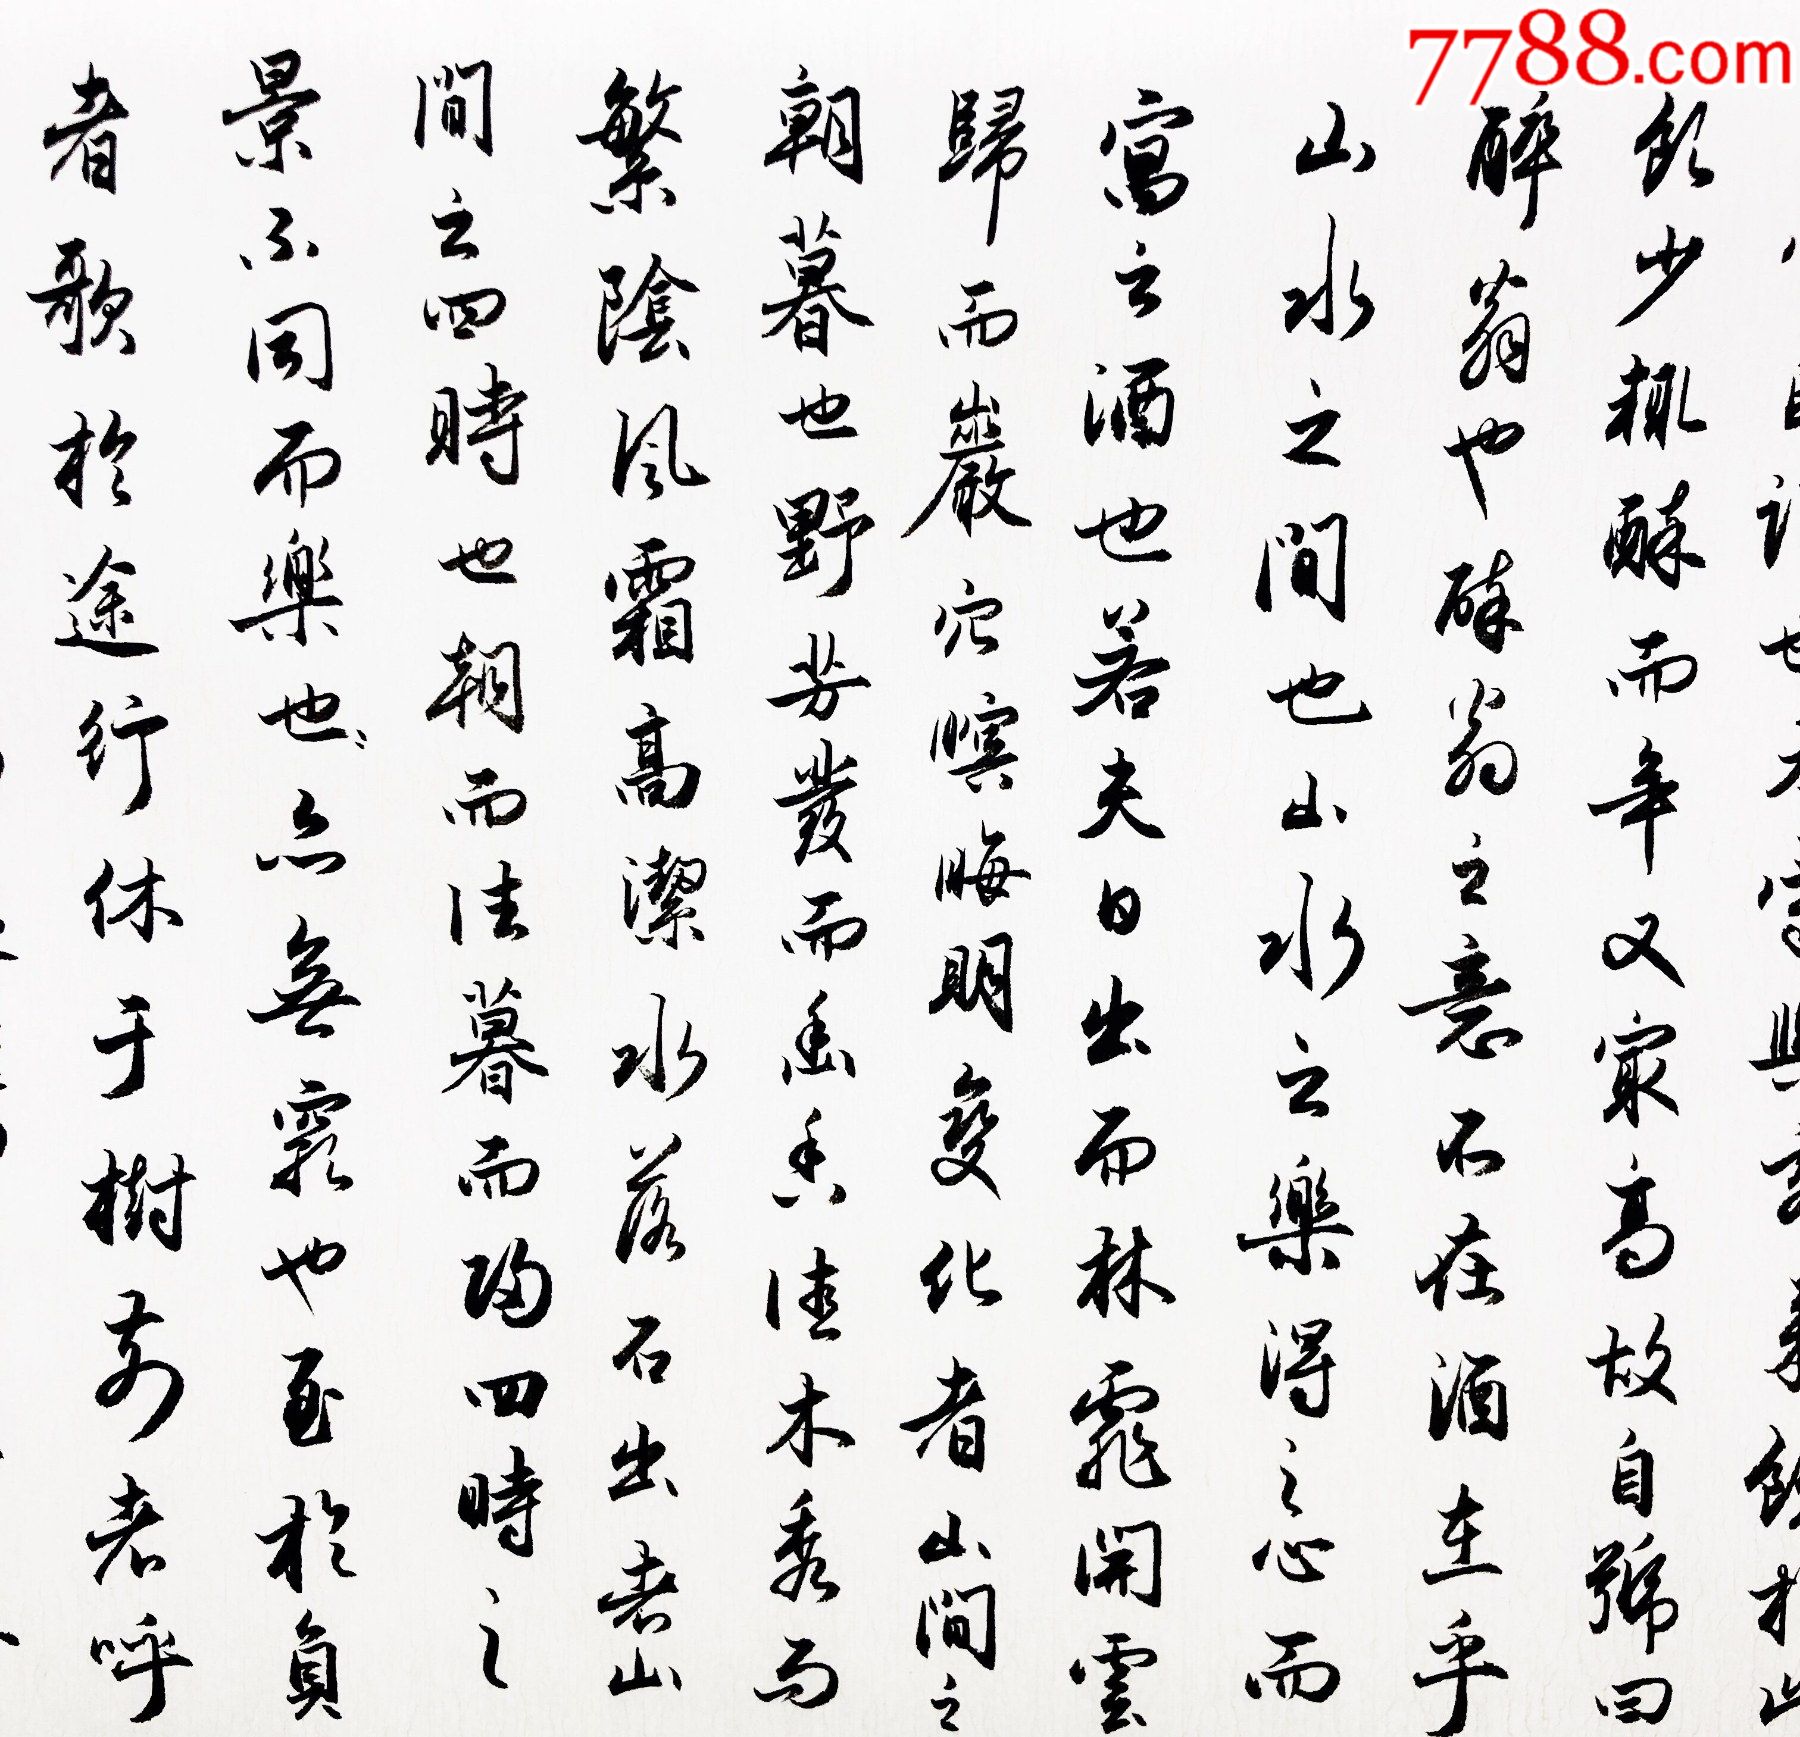 7788.com
飲少輒醉而年又最高故自號曰
醉翁也醉翁之意不在酒在乎
山水之間也山水之樂得之心而
寓之酒也若夫日出而林霏開雲
歸而巖穴暝晦明變化者山間之
朝暮也野芳發而幽香佳木秀而
繁陰風霜高潔水落石出者山
間之四時也朝而往暮而歸四時之
景不同而樂也亦無窮也至於負
者歌於途行休于樹前者呼